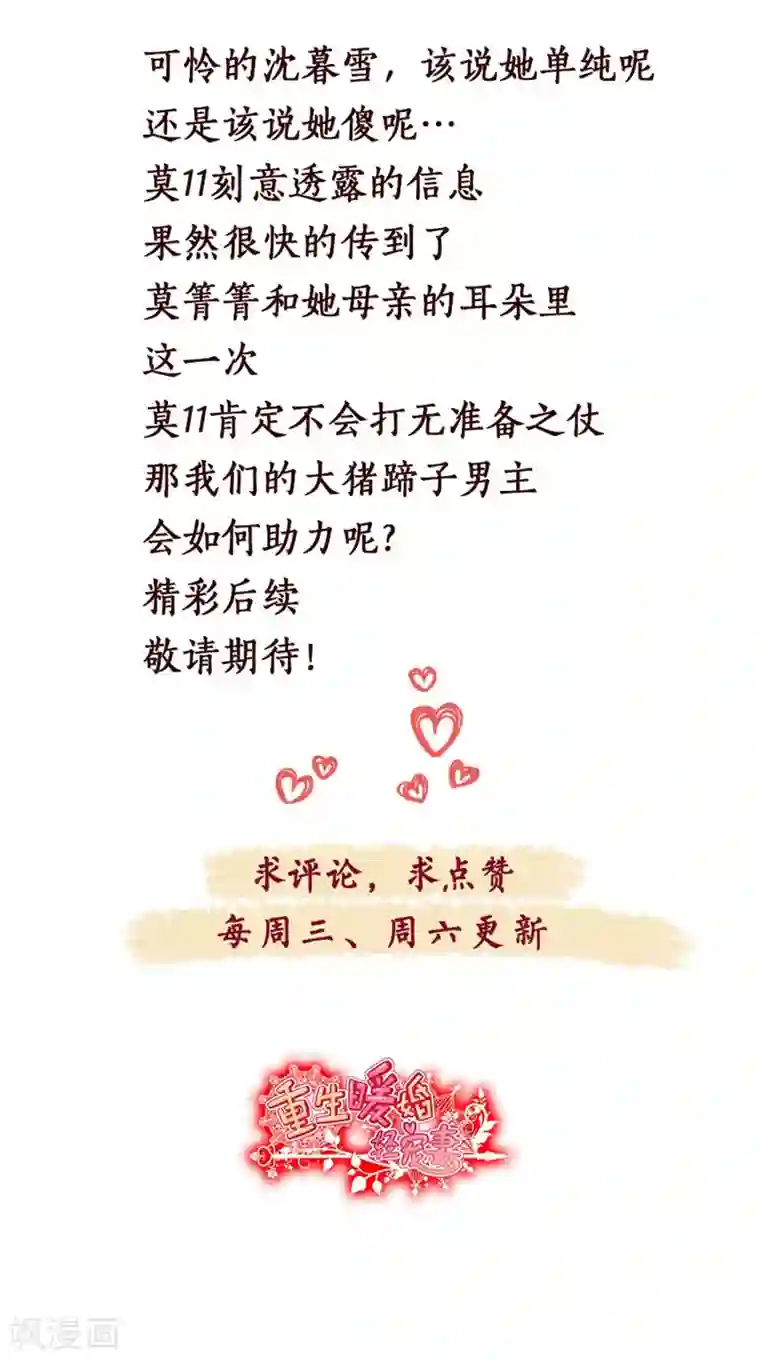 可怜的沈暮雪，该说她单纯呢
还是该说她傻呢…
莫11刻意透露的信息
果然很快的传到了
莫箐箐和她母亲的耳朵里
这一次
莫11肯定不会打无准备之仗
那我们的大猪蹄子男主
会如何助力呢?
精彩后续
敬请期待!
求评论，求点赞
每周三、周六更新
重生暖婚
轻宠妻
飒漫画